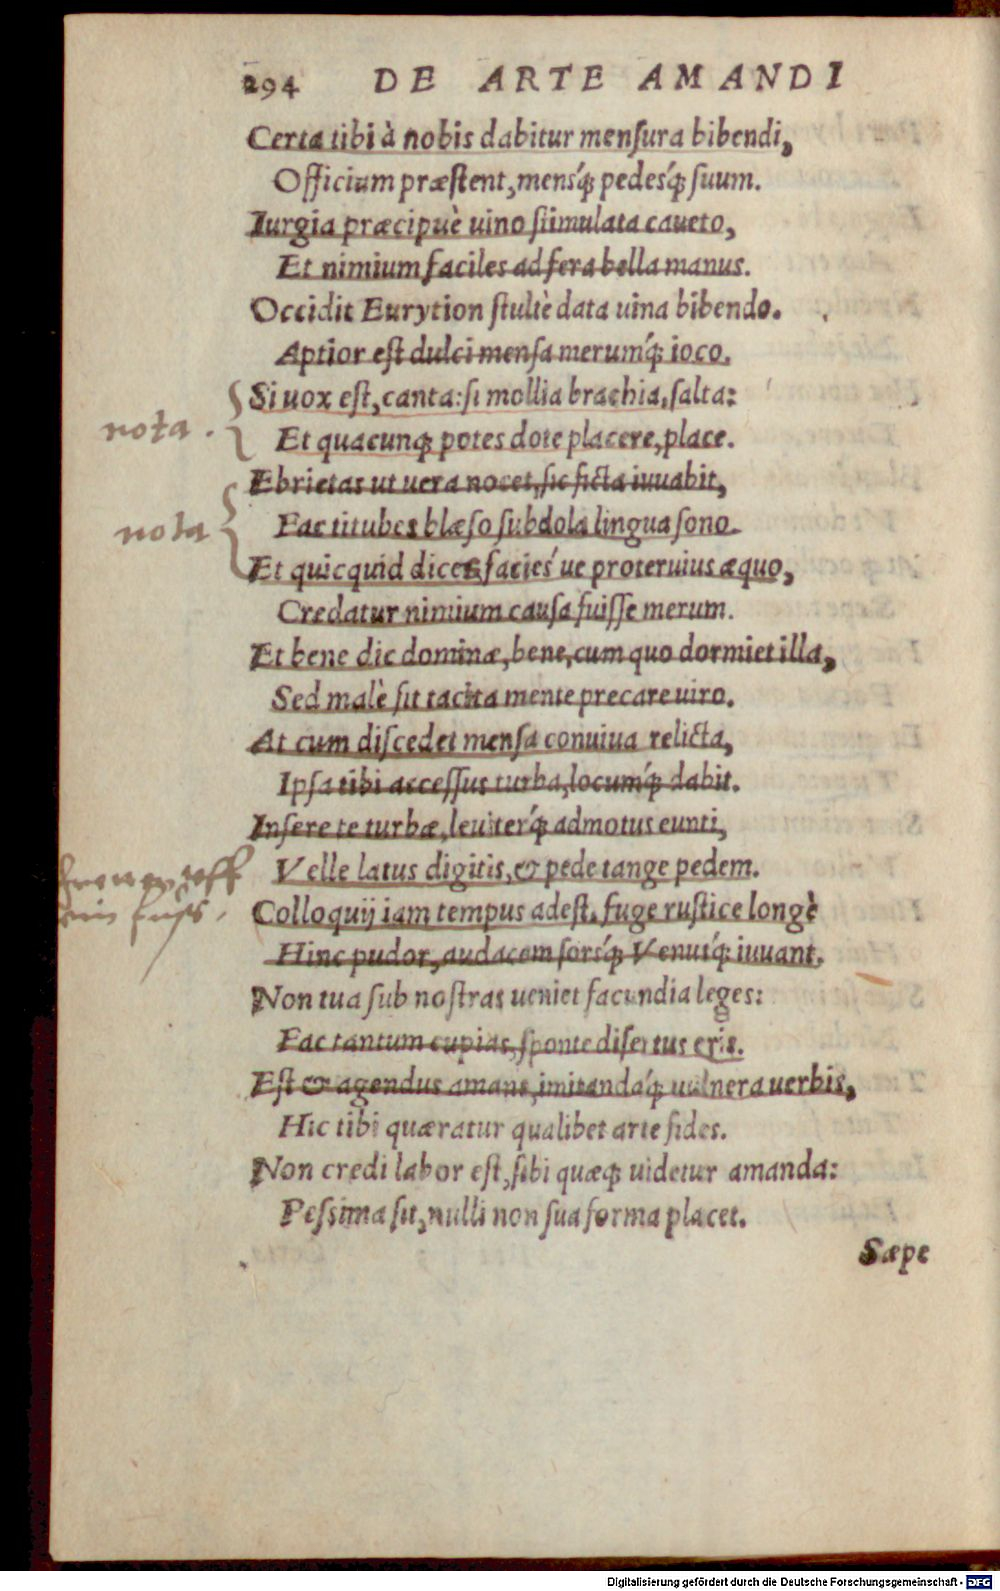 294 DE ARTE AMANDI
Certa tibi à nobis dabitur mensura bibendi,
Officium præstent, mensq́; pedesq́; suum.
Iurgia præcipuè uino stimulata caueto,
Et nimium faciles ad fera bella manus.
Occidit Eurytion stultè data uina bibendo.
Aptior est dulci mensa merumq́; ioco.
Si uox est, canta: si mollia brachia, salta:
nota.
Et quacunq; potes dote placere, place.
Ebrietas ut uera nocet, sic ficta iuuabit,
nota
Fac titubet blæso subdola lingua sono.
Et quicquid dices, facies´ue proteruius æquo,
Credatur nimium causa fuisse merum.
Et bene dic dominæ, bene, cum quo dormiet illa,
Sed malè sit tacita mente precare uiro.
At cum discedet mensa conuiua relicta,
Ipsa tibi accessus turba, locumq́; dabit.
Insere te turbæ, leuiterq́; admotus eunti,
Velle latus digitis, & pede tange pedem.
Colloquij iam tempus adest, fuge rustice longè
Hinc pudor, audacem forsq́; Venusq́; iuuant.
Non tua sub nostras ueniet facundia leges:
Fac tantum cupias, sponte disertus eris.
Est & agendus amans, imitandaq́; uulnera uerbis,
Hic tibi quæratur qualibet arte fides.
Non credi labor est, sibi quæq; uidetur amanda:
Pessima sit, nulli non sua forma placet.
Sæpe
Digitalisierung gefördert durch die Deutsche Forschungsgemeinschaft - DFG